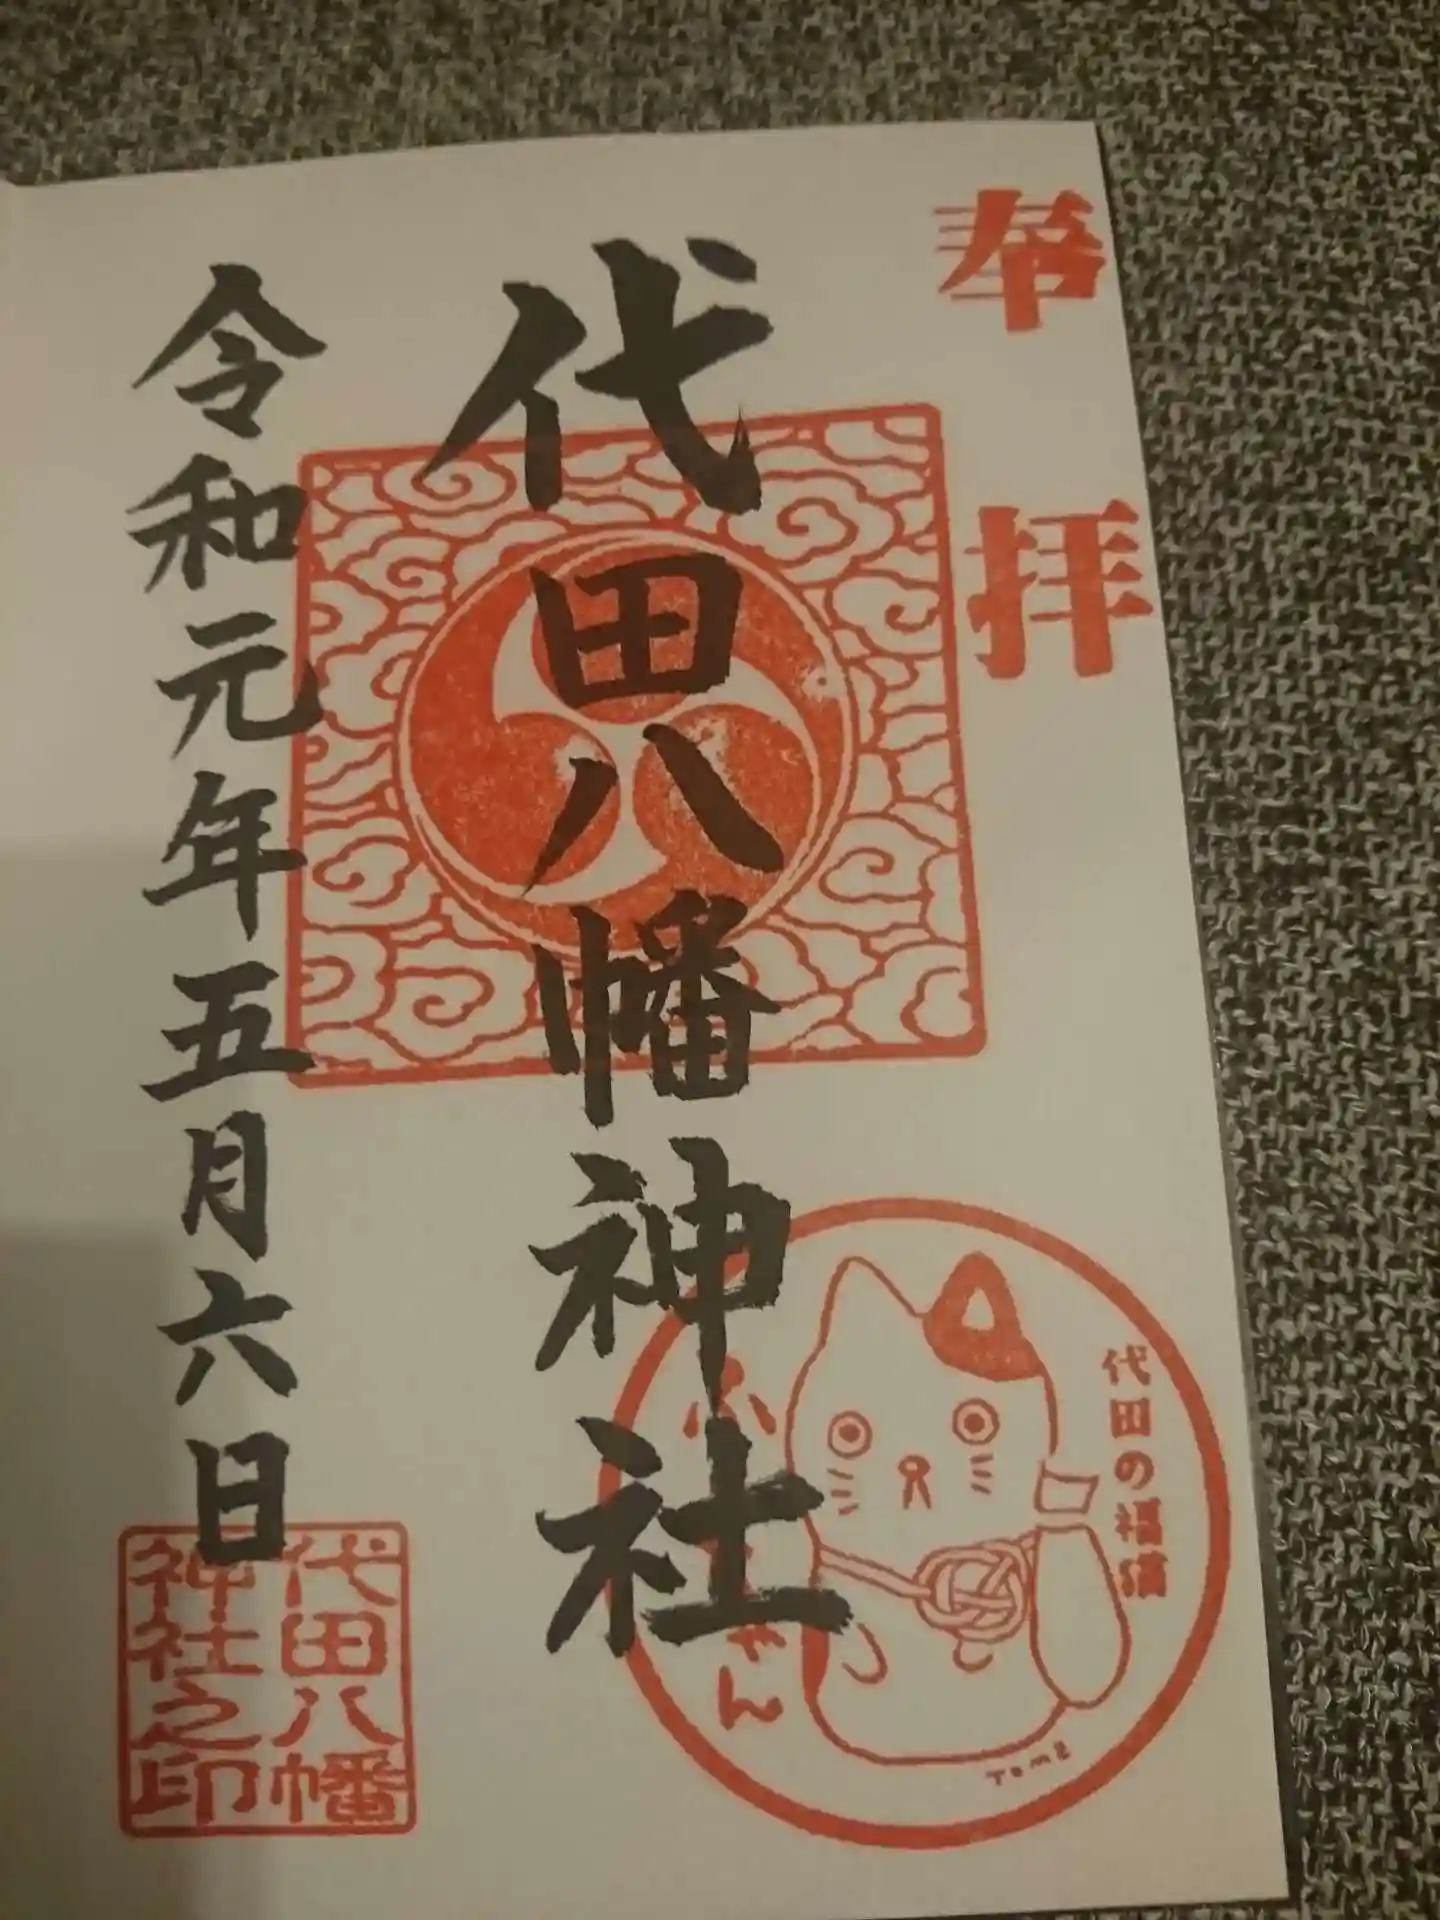 奉拝
代田八幡神社
令和元年五月六日
代田八幡
神社之印
代田の福猫
ゃん
Tomz